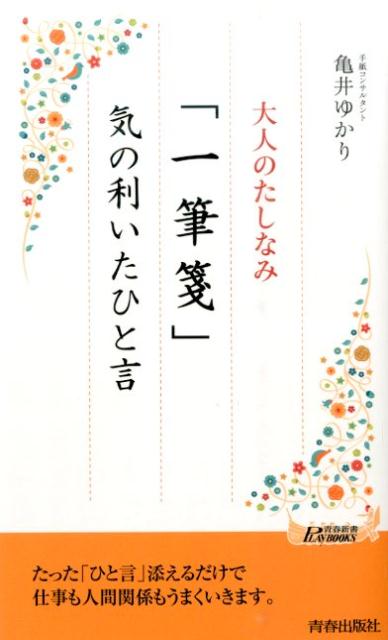 手紙コンサルタント
亀井ゆかり
大人のたしなみ
「一筆箋」
気の利いたひと言
青春新書
PLAYBOOKS
たった「ひと言」添えるだけで
仕事も人間関係もうまくいきます。
青春出版社